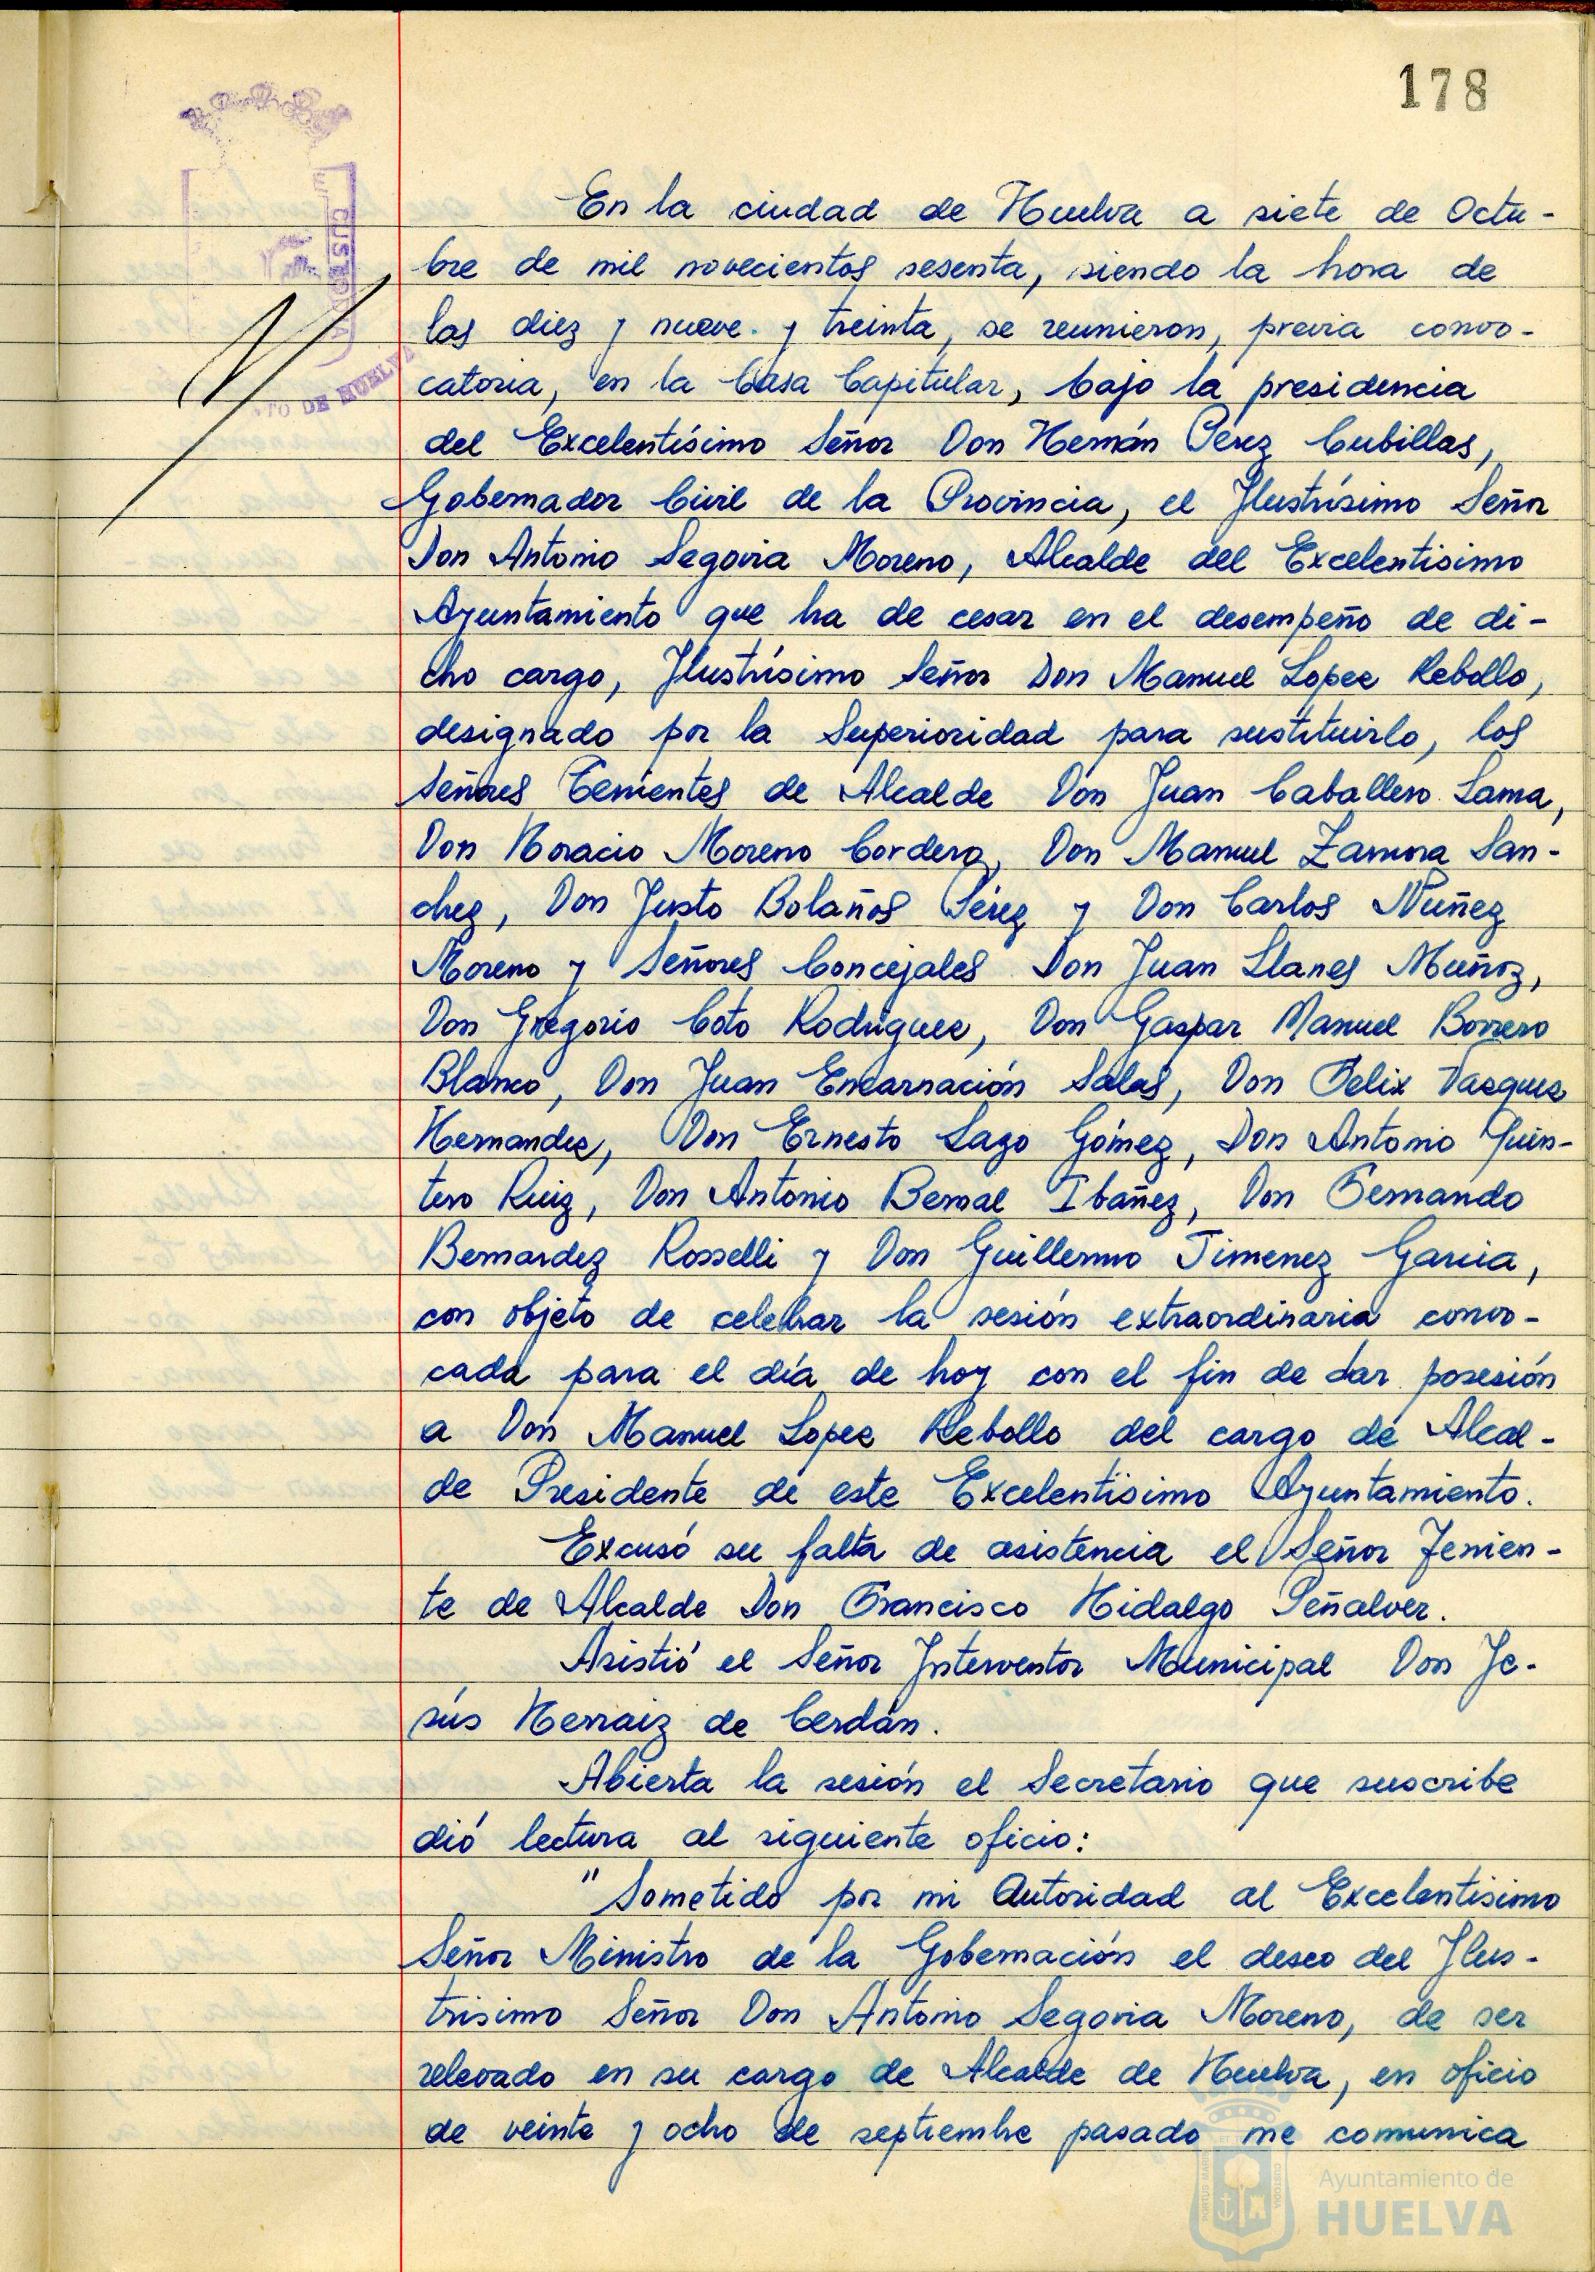 178
CUSTODIA
TO DE HUELVA
En la ciudad de Huelva a siete de Octu-
bre de mil novecientos sesenta, siendo la hora de
las diez y nueve y treinta, se reunieron, previa convo-
catoria, en la Casa Capitular, bajo la presidencia
del Excelentísimo Señor Don Hernán Pérez Cubillas,
Gobernador Civil de la Provincia, el Ilustrísimo Señor
Don Antonio Segovia Moreno, Alcalde del Excelentisimo
Ayuntamiento que ha de cesar en el desempeño de di-
cho cargo, Ilustrísimo Señor Don Manuel Lopez Rebollo,
designado por la Superioridad para sustituirlo, los
Señores Tenientes de Alcalde Don Juan Caballero Lama,
Don Horacio Moreno Cordero, Don Manuel Zamora San-
chez, Don Justo Bolaños Pérez y Don Carlos Nuñez
Moreno y Señores Concejales Don Juan Llanes Muñoz,
Don Gregorio Coto Rodriguez, Don Gaspar Manuel Borrero
Blanco, Don Juan Encarnación Salas, Don Felix Vazquez
Hernandez, Don Ernesto Lazo Gómez, Don Antonio Quin-
tero Ruiz, Don Antonio Bernal Ibañez, Don Fernando
Bernardez Rosselli y Don Guillermo Jimenez Garcia,
con objeto de celebrar la sesión extraordinaria convo-
cada para el día de hoy con el fin de dar posesión
a Don Manuel Lopez Rebollo del cargo de Alcal-
de Presidente de este Excelentisimo Ayuntamiento.
Excusó su falta de asistencia el Señor Tenien-
te de Alcalde Don Francisco Hidalgo Peñalver.
Asistió el Señor Interventor Municipal Don Je-
sús Herraiz de Cerdán.
Abierta la sesión el Secretario que suscribe
dió lectura al siguiente oficio:
"Sometido por mi Autoridad al Excelentisimo
Señor Ministro de la Gobernación el deseo del Ilus-
trisimo Señor Don Antonio Segovia Moreno, de ser
relevado en su cargo de Alcalde de Huelva, en oficio
de veinte y ocho de septiembre pasado me comunica
Ayuntamiento de
HUELVA